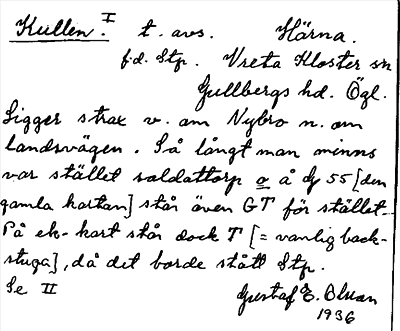 Kullen. I t. avs. Härna.
f.d. Stp. Vreta Kloster sn
Gullbergs hd. Ögl.
Ligger strax v. om Nybro n. om
landsvägen. Så långt man minns
var stället soldattorp o å 55 [den
gamla kartan] står även GT för stället.
På ek-kart står dock T [= vanlig back-
stuga], då det borde stått Stp.
Se II Gustaf E. Olson
1936